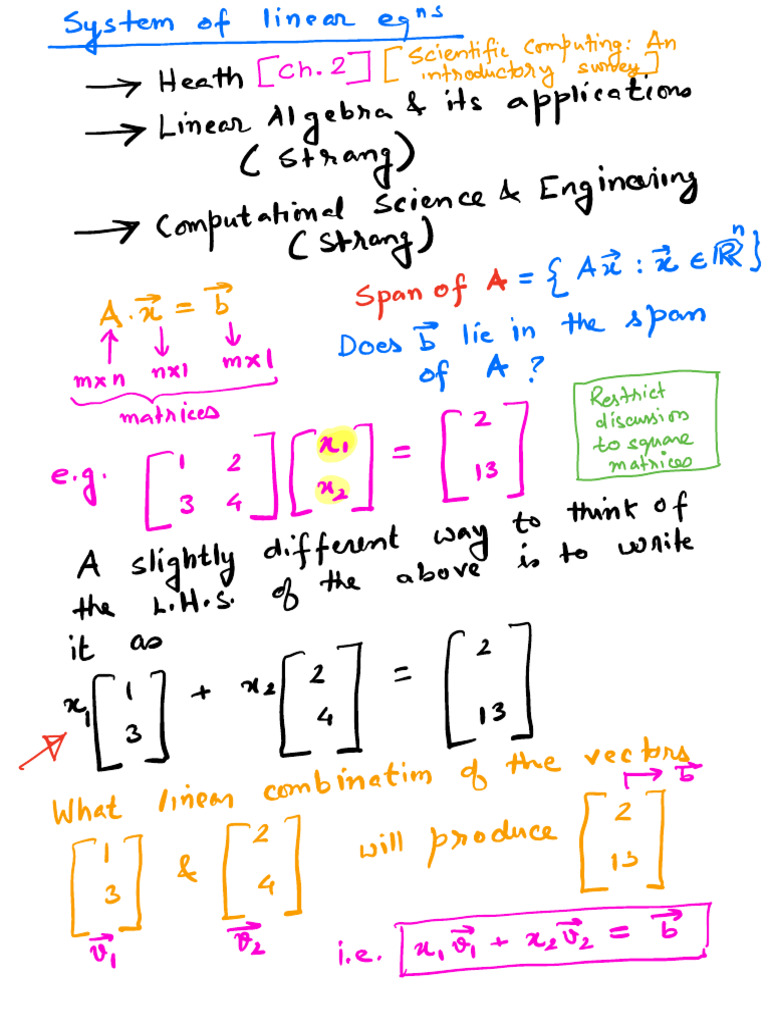 System of linear eqns
→ Heath [Ch. 2] [Scientific Computing: An
introductory survey]
→ Linear Algebra & its applications
(Strang)
→ Computational Science & Engineering
(Strang)
A.x⃗ = b⃗
m×n n×1 m×1
matrices
Span of A = {Ax⃗ : x⃗ ∈ ℝⁿ}
Does b⃗ lie in the span
of A ?
Restrict
discussion
to square
matrices
e.g. [1 2; 3 4] [x₁; x₂] = [2; 13]
A slightly different way to think of
the L.H.S. of the above is to write
it as
x₁ [1; 3] + x₂ [2; 4] = [2; 13]
What linear combination of the vectors
[1; 3] & [2; 4] will produce [2; 13] → b⃗
v⃗₁ v⃗₂
i.e. x₁v⃗₁ + x₂v⃗₂ = b⃗